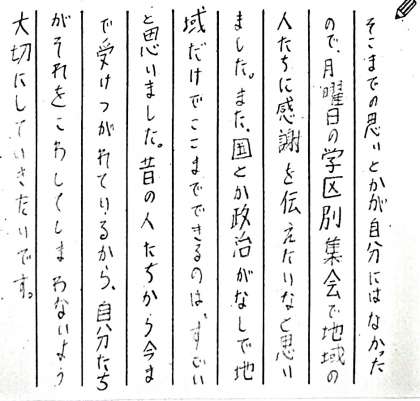 そこまでの思いとかが自分にはなかった
ので、月曜日の学区別集会で地域の
人たちに感謝を伝えたいなと思い
ました。また、国とか政治がなしで地
域だけでここまでできるのは、すごい
と思いました。昔の人たちから今ま
で受けつがれているから、自分たち
がそれをこわしてしまわないよう
大切にしていきたいです。